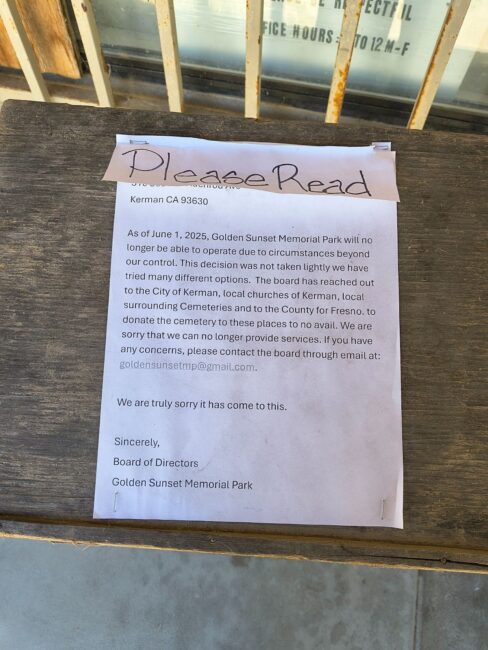 FICE HOURS: TO 12 M-F
Please Read
Kerman CA 93630
As of June 1, 2025, Golden Sunset Memorial Park will no
longer be able to operate due to circumstances beyond
our control. This decision was not taken lightly we have
tried many different options.  The board has reached out
to the City of Kerman, local churches of Kerman, local
surrounding Cemeteries and to the County for Fresno. to
donate the cemetery to these places to no avail. We are
sorry that we can no longer provide services. If you have
any concerns, please contact the board through email at:
goldensunsetmp@gmail.com.
We are truly sorry it has come to this.
Sincerely,
Board of Directors
Golden Sunset Memorial Park